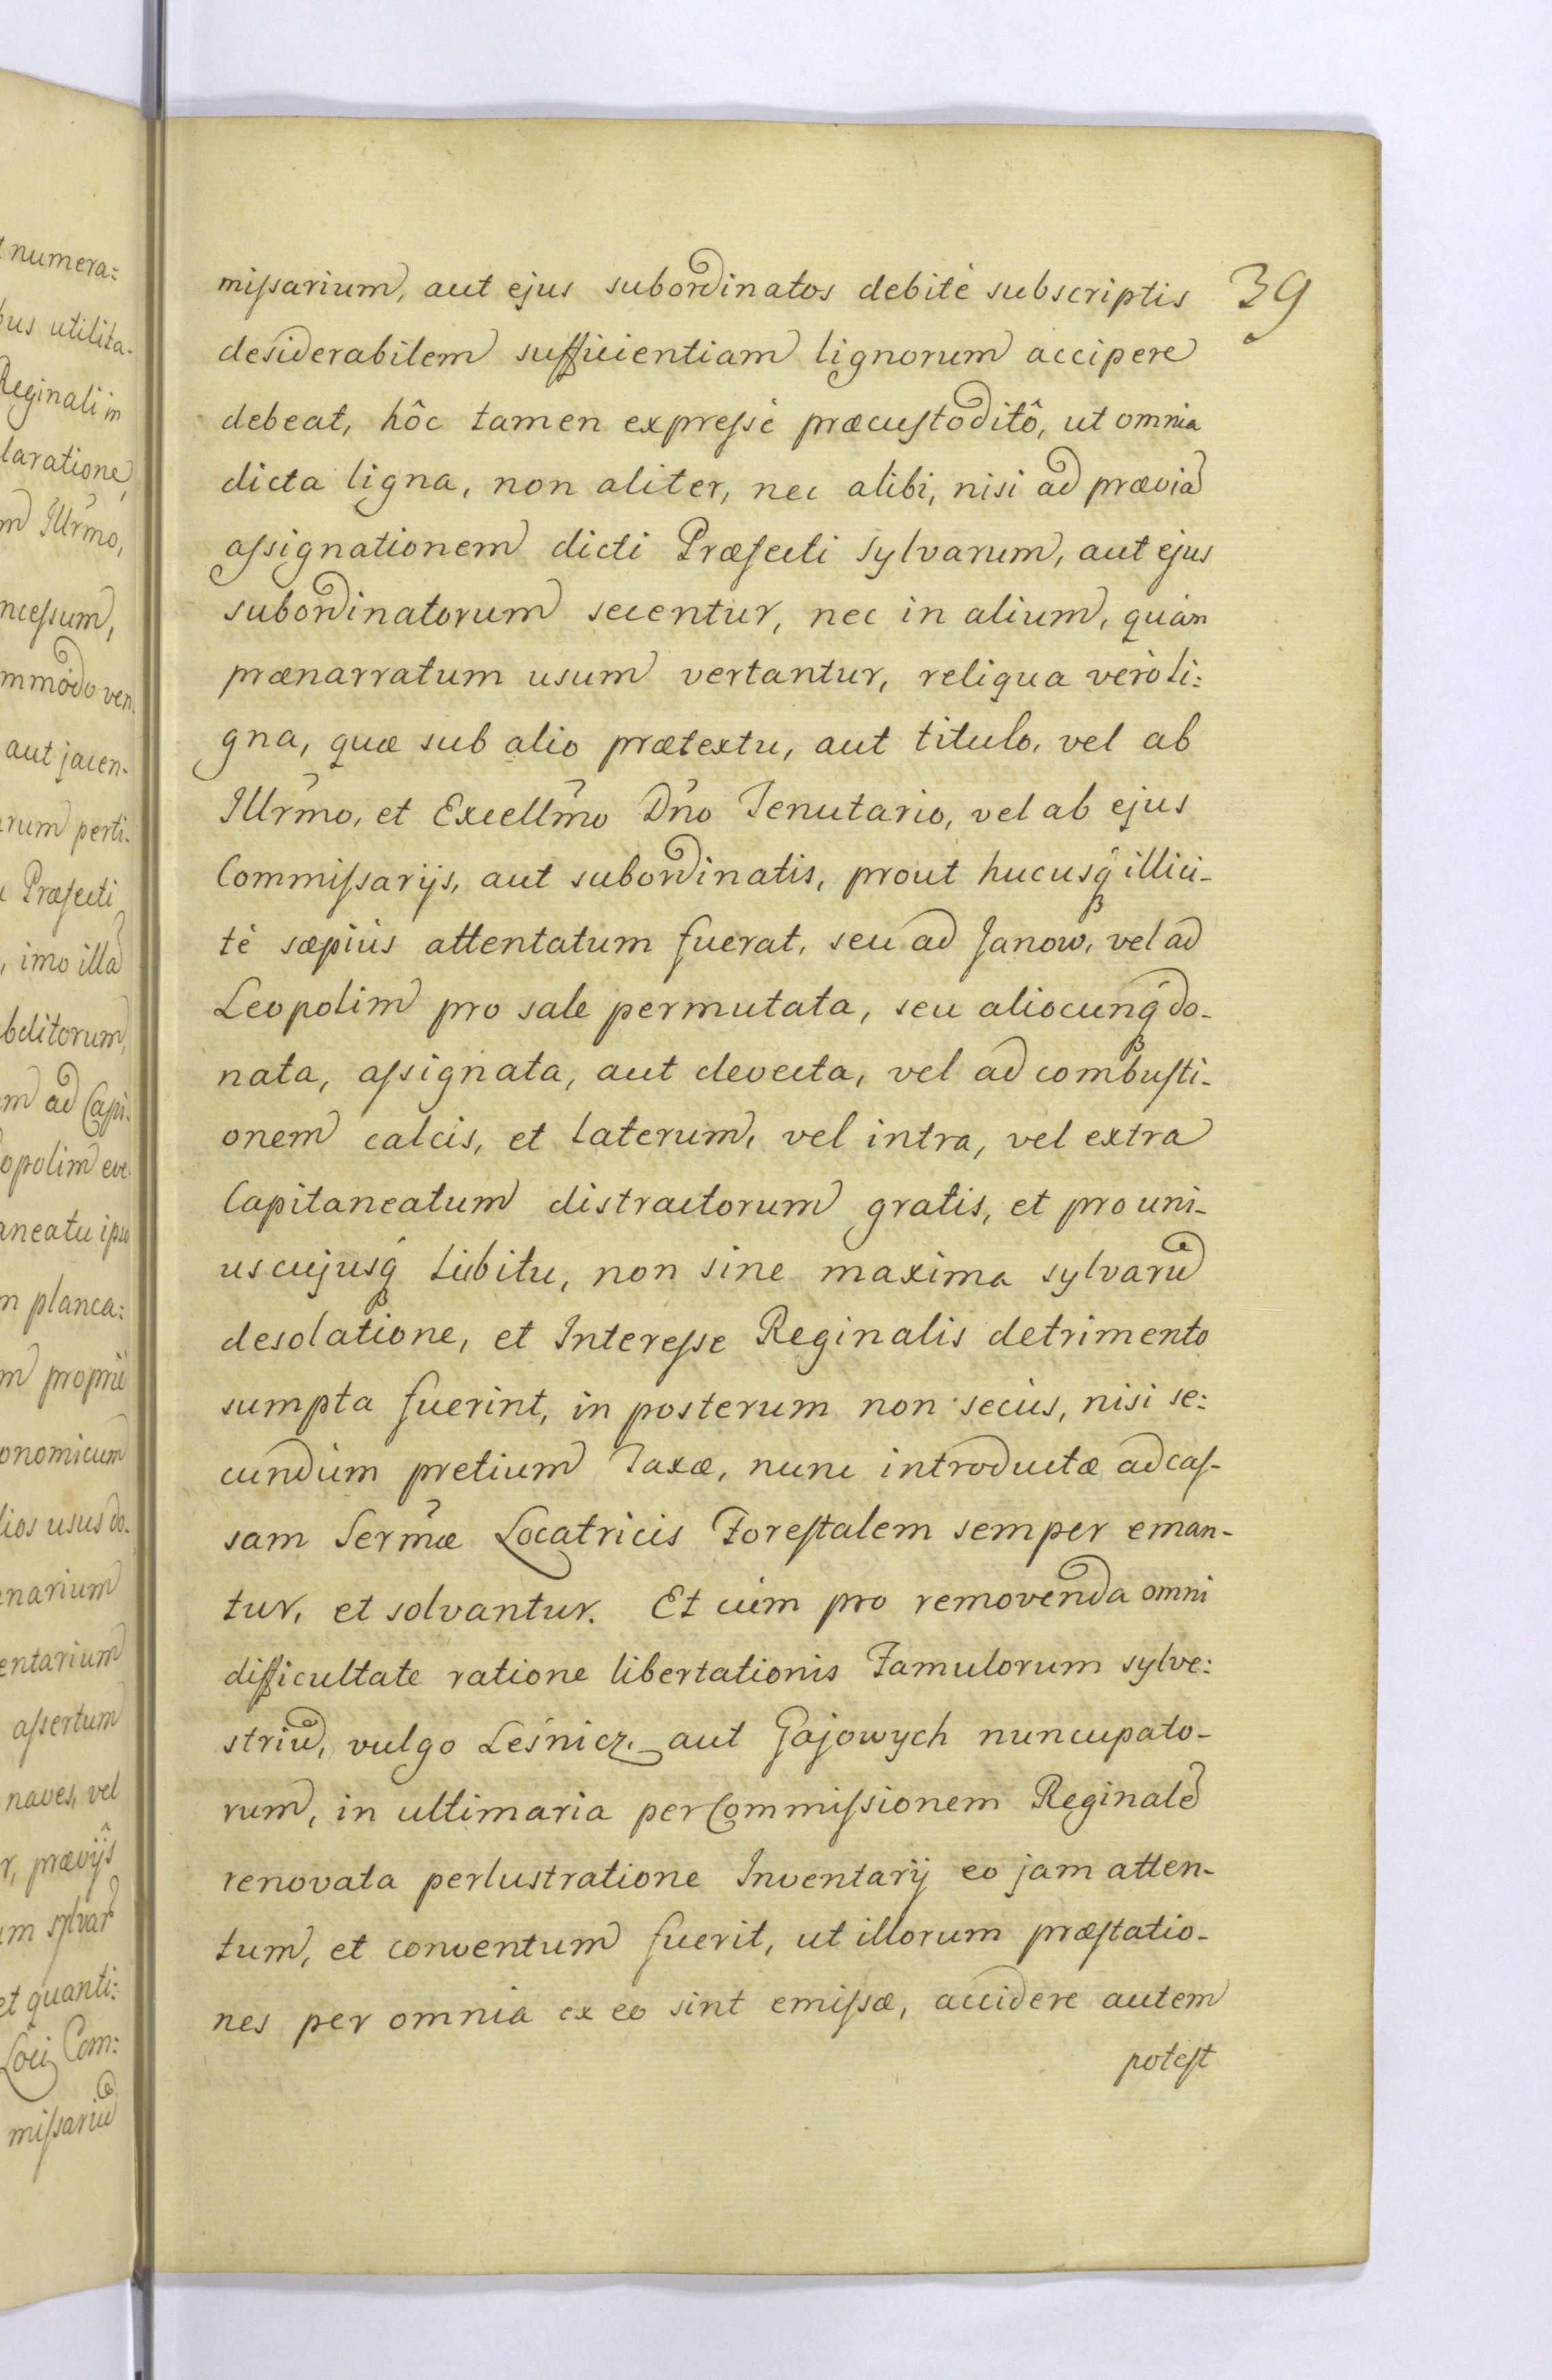 numera:
bus utilita-
Reginali in
laratione,
m Illr̃mo,
ncessum,
mmodo ven-
aut jacen-
rum perti-
Præfecti
, imo illã
bditorum,
m ad Capi-
opolim eve-
aneatu ipso
m planca:
m proprie
onomicum
lios usus do-
narium
entarium
assertum
naves, vel
r, prævijs
um sylvar̃
et quanti:
Loci Com:
missariũ
39
missarium, aut ejus subordinatos debitè subscriptis
desiderabilem sufficientiam lignorum accipere
debeat, hôc tamen expressè præcustoditô, ut omnia
dicta ligna, non aliter, nec alibi, nisi ad præviã
assignationem dicti Præfecti Sylvarum, aut ejus
subordinatorum secentur, nec in alium, quàm
prænarratum usum vertantur, reliqua verò li:
gna, quæ sub alio prætextu, aut titulo, vel ab
Illr̃mo, et Excell̃mo Dño Tenutario, vel ab ejus
Commissarijs, aut subordinatis, prout hucusq́ illici-
tè sæpiùs attentatum fuerat, seu ad Janow, vel ad
Leopolim pro sale permutata, seu aliocunq́ do-
nata, assignata, aut devecta, vel ad combusti-
onem calcis, et laterum, vel intra, vel extra
Capitaneatum distractorum gratis, et pro uni-
uscujusq́ lubitu, non sine maxima sylvarũ
desolatione, et Interesse Reginalis detrimento
sumpta fuerint, in posterum non seciùs, nisi se:
cundùm pretium Taxæ, nunc introductæ ad cas-
sam Serm̃æ Locatricis Forestalem semper eman-
tur, et solvantur. Et cùm pro removenda omni
difficultate ratione libertationis Famulorum sylve:
striũ, vulgo Leśnicz. aut Gajowych nuncupato-
rum, in ultimaria per Commissionem Reginalẽ
renovata perlustratione Inventarij eo jam atten-
tum, et conventum fuerit, ut illorum præstatio-
nes per omnia ex eo sint emissæ, accidere autem
potest